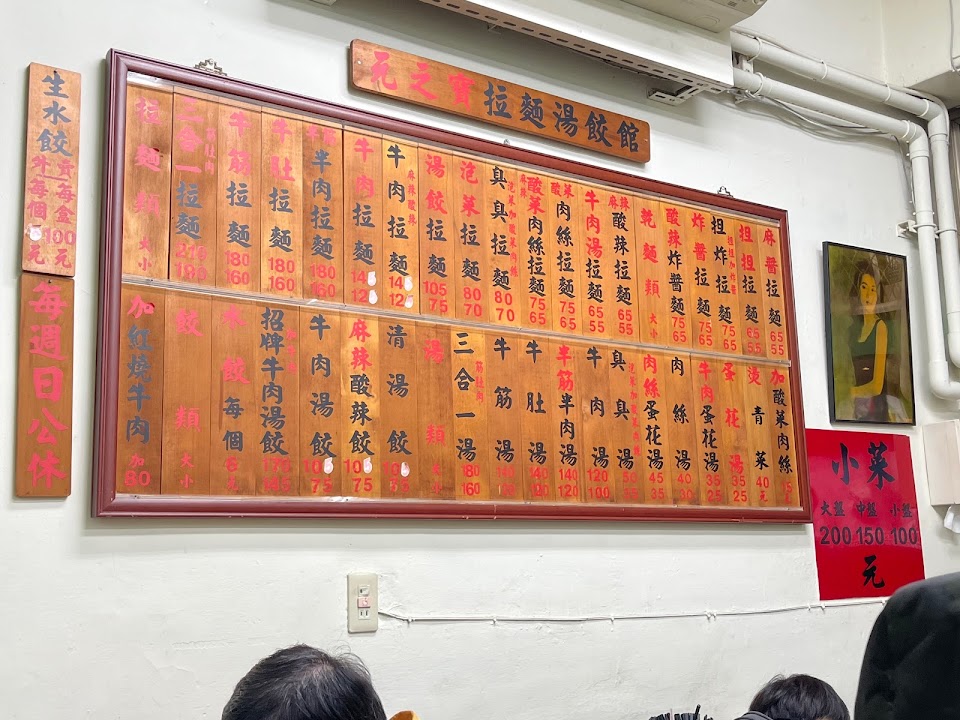 元之寶拉麵湯餃館
生水餃
每週日公休
拉麵類 大 小
三合一拉麵 210 190
牛筋拉麵 180 160
牛肚拉麵 180 160
半肉拉麵 180 160
牛肉拉麵
牛肉湯拉麵 65 55
湯餃拉麵 105 75
泡菜拉麵 80 70
臭臭拉麵 80 70
酸菜肉絲拉麵 75 65
肉絲拉麵 75 65
麻辣酸辣拉麵 65 55
乾麵類 大 小
酸辣炸醬麵 75 65
炸醬拉麵 75 65
担炸拉麵 75 65
担担拉麵 65 55
麻醬拉麵 65 55
加紅燒牛肉 加80
餃類 大 小
水餃每個
招牌牛肉湯餃 170 145
牛肉湯餃 75
麻辣酸辣餃 75
清湯餃
湯類 大 小
三合一湯 180 160
牛筋湯 140
牛肚湯 140 120
半筋半肉湯 140 120
牛肉湯 120 100
臭臭湯
肉絲蛋花湯 45 35
肉絲湯 40 30
牛肉蛋花湯 35 25
蛋花湯 35 25
燙青菜 40元
加酸菜肉絲
小菜
大盤 中盤 小盤
200 150 100
元